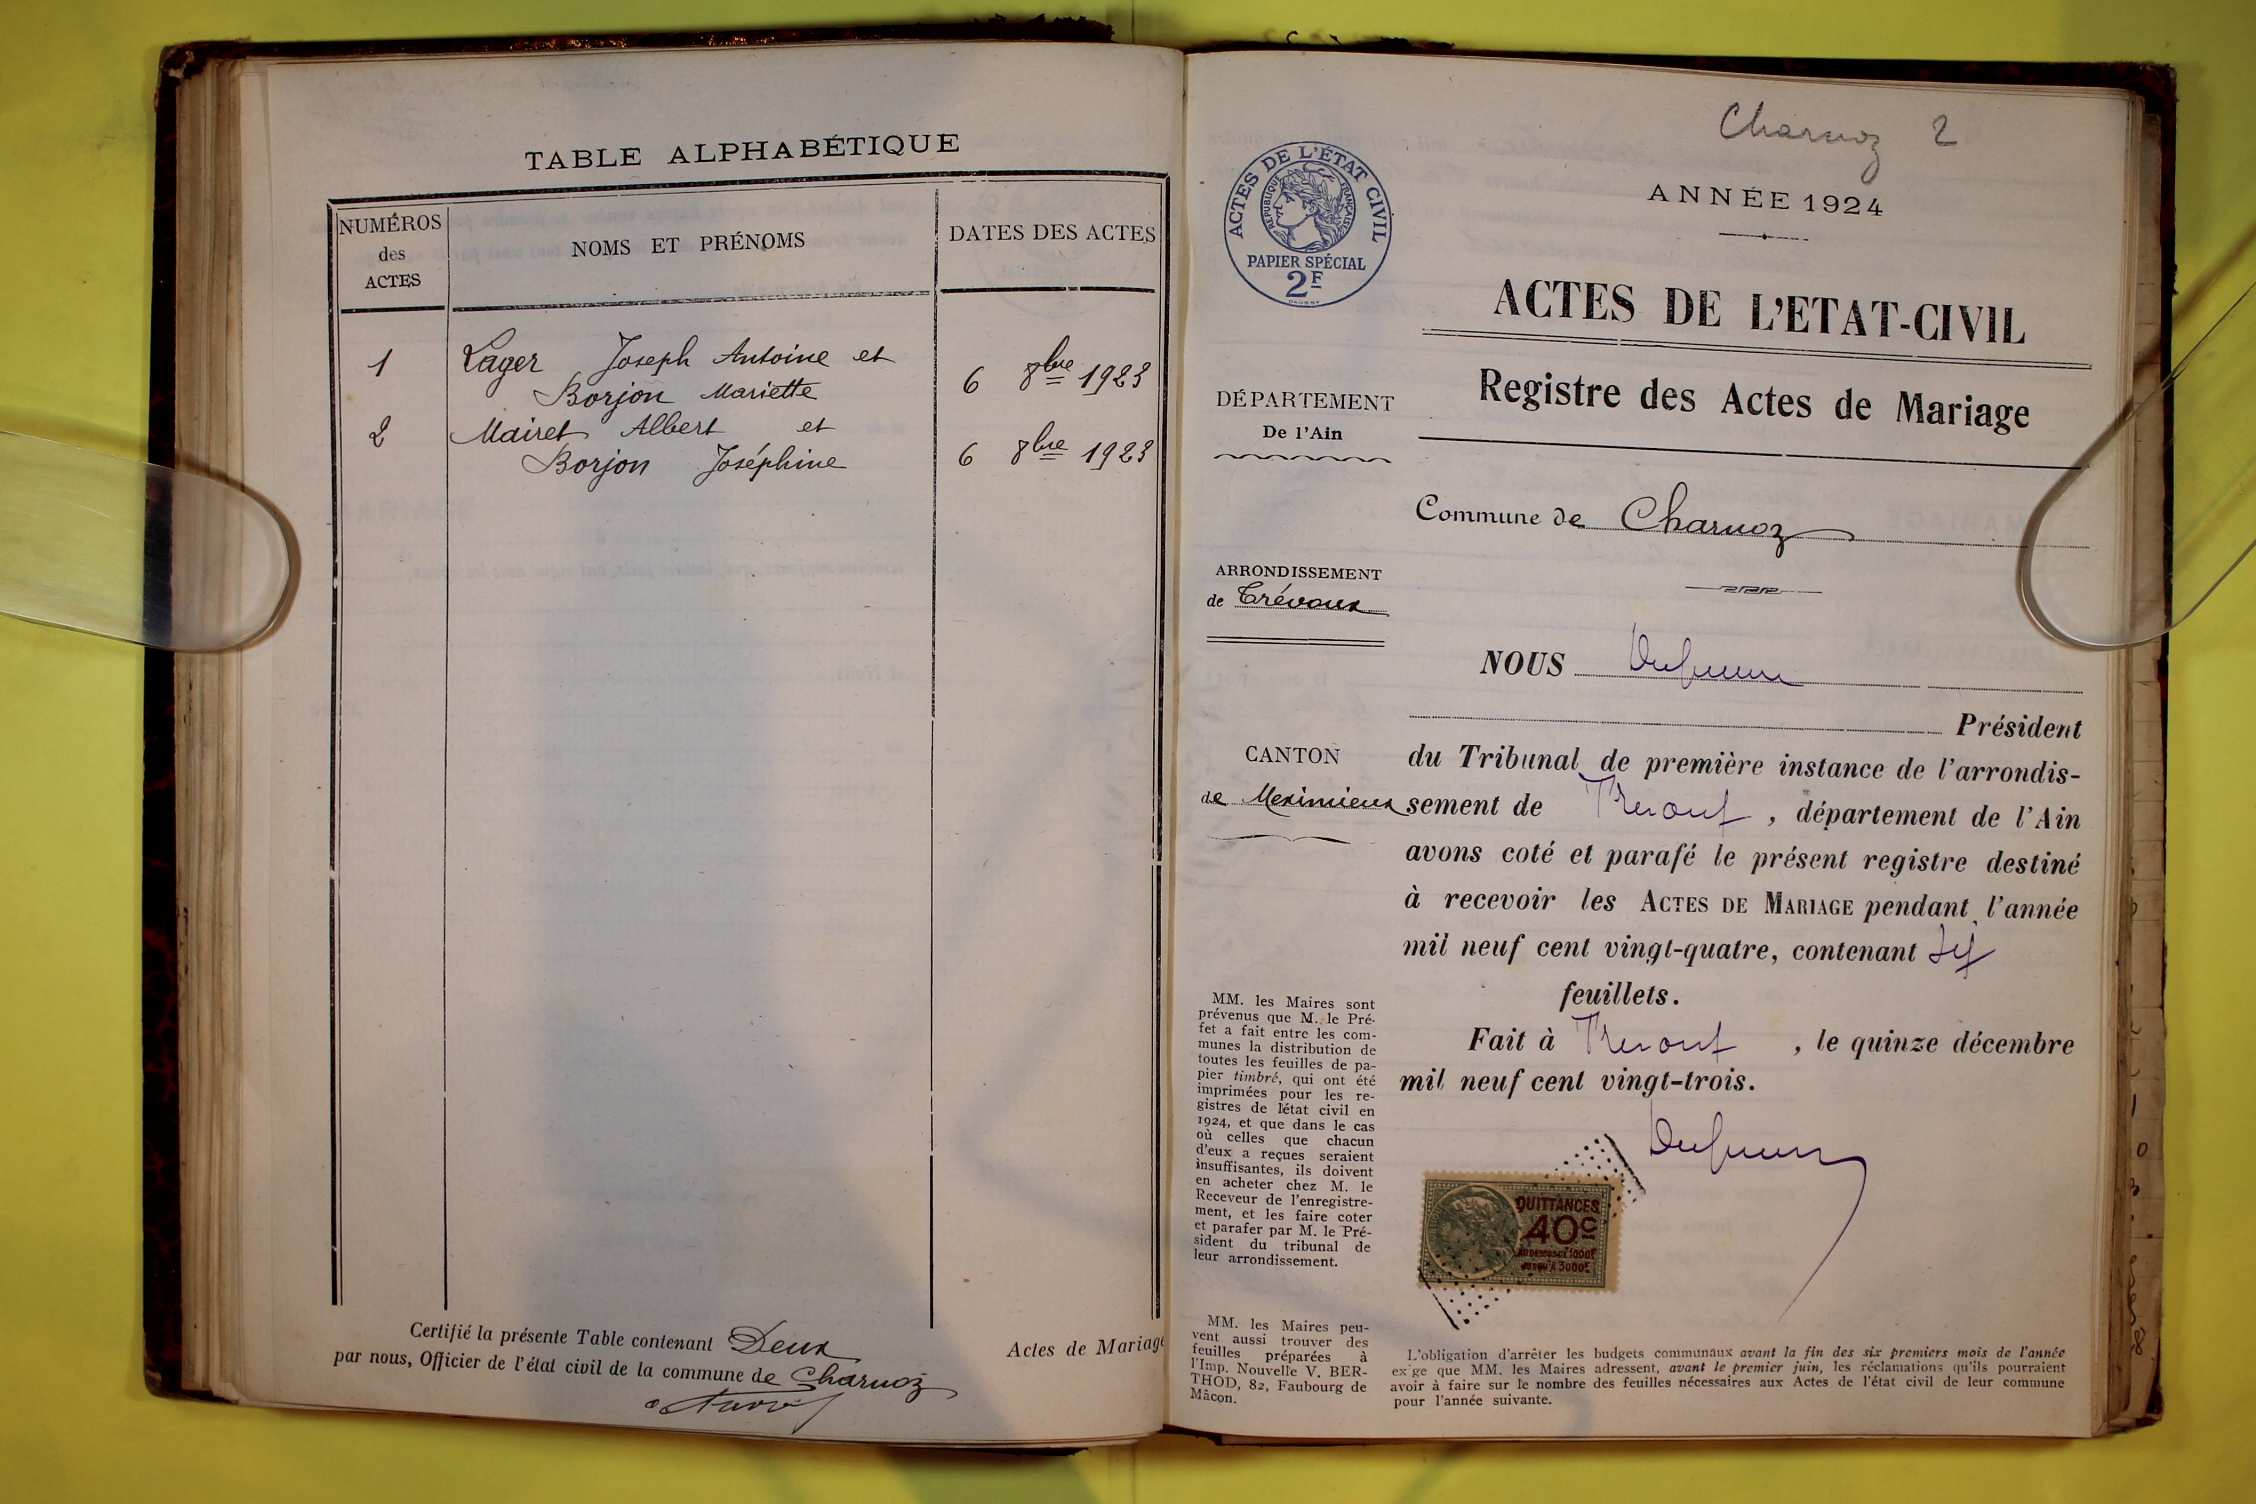 TABLE ALPHABÉTIQUE
NUMÉROS
des
ACTES
NOMS ET PRÉNOMS
DATES DES ACTES
1 Lager Joseph Antoine et
Borjon Mariette 6 8bre 1923
2 Mairet Albert et
Borjon Joséphine 6 8bre 1923
Certifié la présente Table contenant Deux Actes de Mariage
par nous, Officier de l'état civil de la commune de Charnoz
Charnoz 2
ACTES DE L'ÉTAT CIVIL
RÉPUBLIQUE FRANÇAISE
PAPIER SPÉCIAL
2F
ANNÉE 1924
ACTES DE L'ETAT-CIVIL
Registre des Actes de Mariage
DÉPARTEMENT
De l'Ain
Commune de Charnoz
ARRONDISSEMENT
de Trévoux
CANTON
de Meximieux
NOUS
Président
du Tribunal de première instance de l'arrondis-
sement de Trevoux, département de l'Ain
avons coté et parafé le présent registre destiné
à recevoir les ACTES DE MARIAGE pendant l'année
mil neuf cent vingt-quatre, contenant
feuillets.
Fait à Trevoux, le quinze décembre
mil neuf cent vingt-trois.
MM. les Maires sont
prévenus que M. le Pré-
fet a fait entre les com-
munes la distribution de
toutes les feuilles de pa-
pier timbré, qui ont été
imprimées pour les re-
gistres de l'état civil en
1924, et que dans le cas
où celles que chacun
d'eux a reçues seraient
insuffisantes, ils doivent
en acheter chez M. le
Receveur de l'enregistre-
ment, et les faire coter
et parafer par M. le Pré-
sident du tribunal de
leur arrondissement.
QUITTANCES
40c
AU DESSUS DE 1000F
JUSQU'A 3000F
MM. les Maires peu-
vent aussi trouver des
feuilles préparées à
l'Imp. Nouvelle V. BER-
THOD, 82, Faubourg de
Mâcon.
L'obligation d'arrêter les budgets communaux avant la fin des six premiers mois de l'année
exige que MM. les Maires adressent, avant le premier juin, les réclamations qu'ils pourraient
avoir à faire sur le nombre des feuilles nécessaires aux Actes de l'état civil de leur commune
pour l'année suivante.